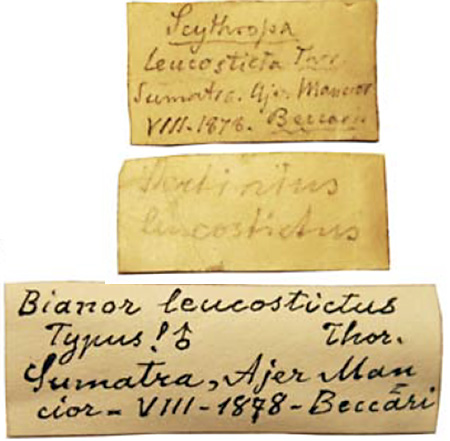 Scythropa
leucosticta Thor.
Sumatra. Ajer Mancior
VIII-1878. Beccari
leucostictus
Bianor leucostictus
Typus! ♂ Thor.
Sumatra, Ajer Man
cior - VIII - 1878 - Beccari